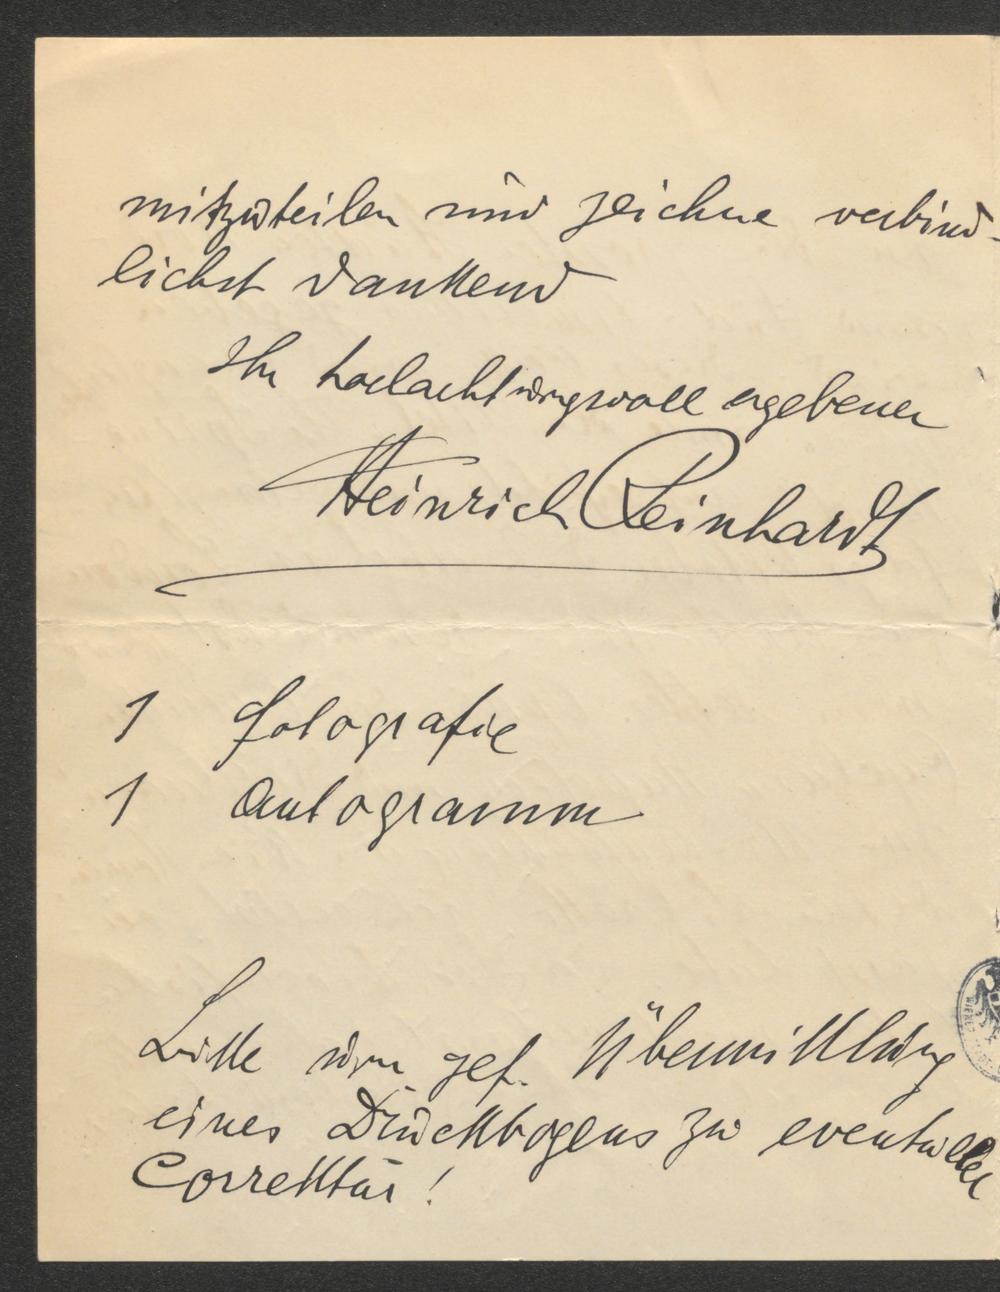 mitzuteilen und zeichne verbind-
lichst dankend
Ihr hochachtungsvoll ergebener
Heinrich Reinhardt
1 Fotografie
1 Autogramm
Bitte um gef. Übermittlung
eines Druckbogens zu eventueller
Correktur!
WIENER